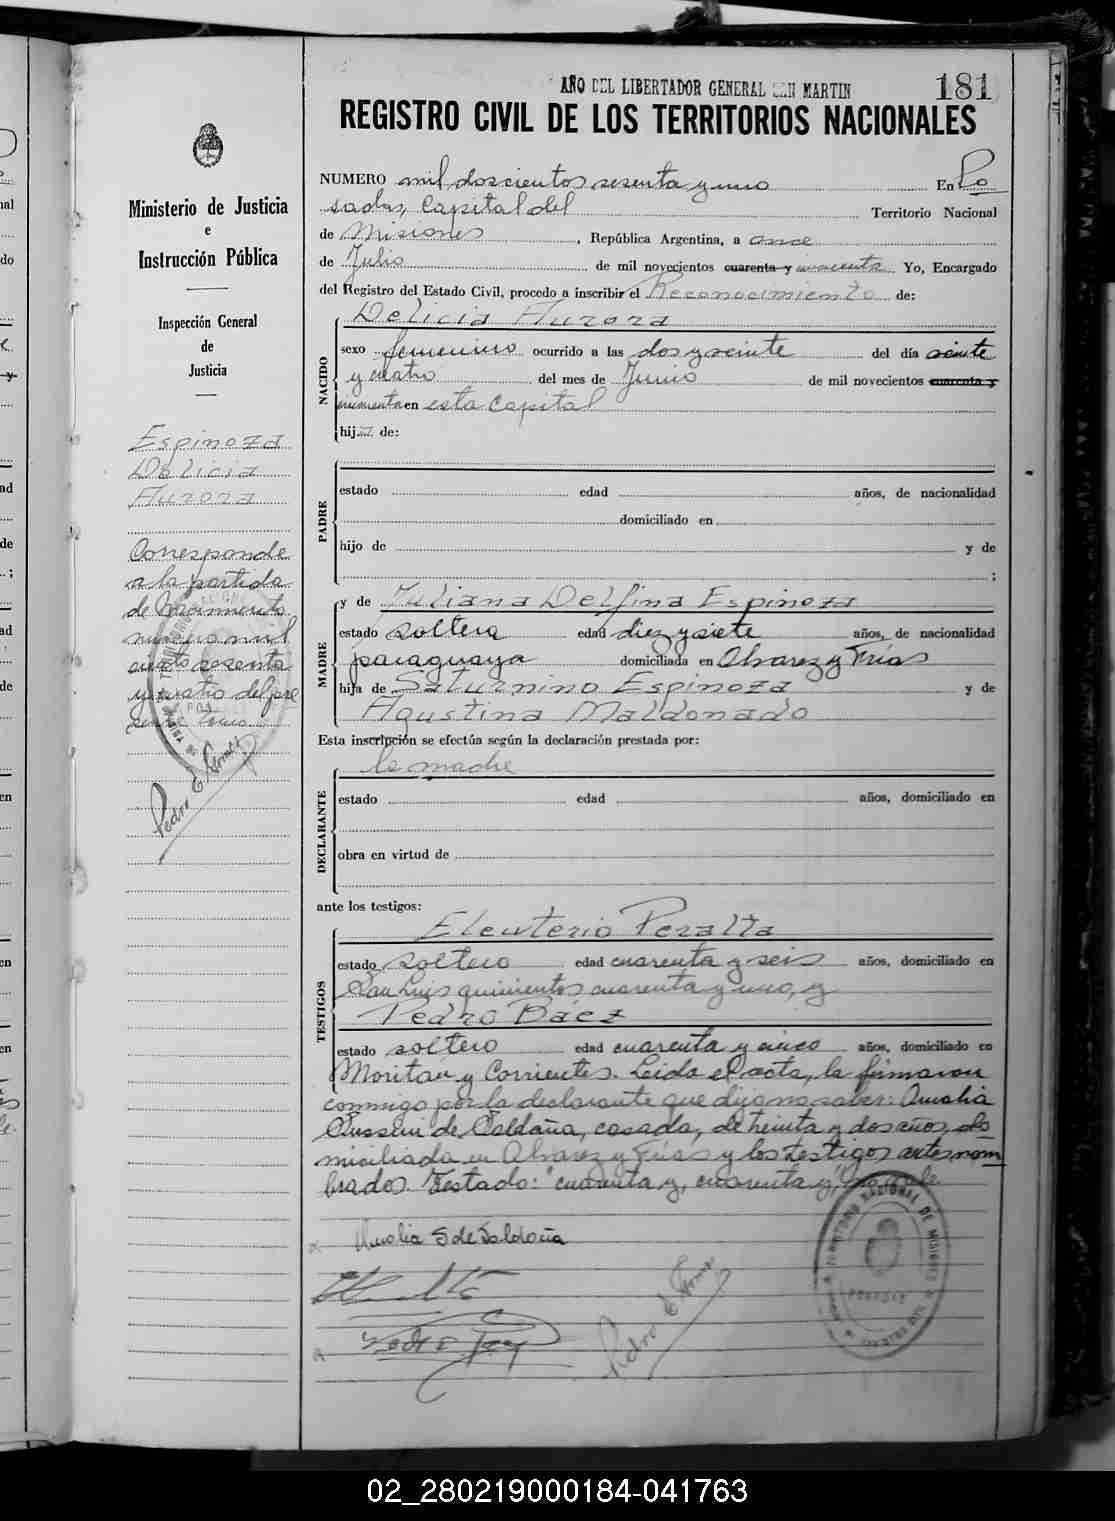 AÑO DEL LIBERTADOR GENERAL SAN MARTIN
181
REGISTRO CIVIL DE LOS TERRITORIOS NACIONALES
Ministerio de Justicia
e
Instrucción Pública
Inspección General
de
Justicia
Espinoza
Delicia
Aurora
Corresponde
a la partida
de nacimiento
número mil
ciento sesenta
y cuatro del pre
sente tomo
Pedro E Gomez
NUMERO mil doscientos sesenta y uno En Po
sadas, Capital del Territorio Nacional
de Misiones, República Argentina, a once
de Julio de mil novecientos cuarenta y cincuenta Yo, Encargado
del Registro del Estado Civil, procedo a inscribir el Reconocimiento de:
NACIDO
Delicia Aurora
sexo femenino ocurrido a las dos y veinte del día veinte
y cuatro del mes de Junio de mil novecientos cuarenta y
cincuenta en esta Capital
hija de:
PADRE
estado edad años, de nacionalidad
domiciliado en
hijo de y de
;
MADRE
y de Juliana Delfina Espinoza
estado soltera edad diez y siete años, de nacionalidad
paraguaya domiciliada en Alvarez y Frías
hija de Saturnino Espinoza y de
Agustina Maldonado
Esta inscripción se efectúa según la declaración prestada por:
DECLARANTE
la madre
estado edad años, domiciliado en
obra en virtud de
ante los testigos:
TESTIGOS
Eleuterio Peralta
estado soltero edad cuarenta y seis años, domiciliado en
San Luis quinientos cuarenta y uno, y
Pedro Báez
estado soltero edad cuarenta y cinco años, domiciliado en
Moritan y Corrientes. Leida el acta, la firmaron
conmigo por la declarante que dijo no saber: Amalia
de Saldaña, casada, de treinta y dos años, do
miciliada en Alvarez y Frías y los testigos antes nom
brados. Testado: "cuarenta y, cuarenta y,"
Amalia S de Saldaña
Pedro E Gomez
TERRITORIO NACIONAL DE MISIONES
POSADAS
02_280219000184-041763